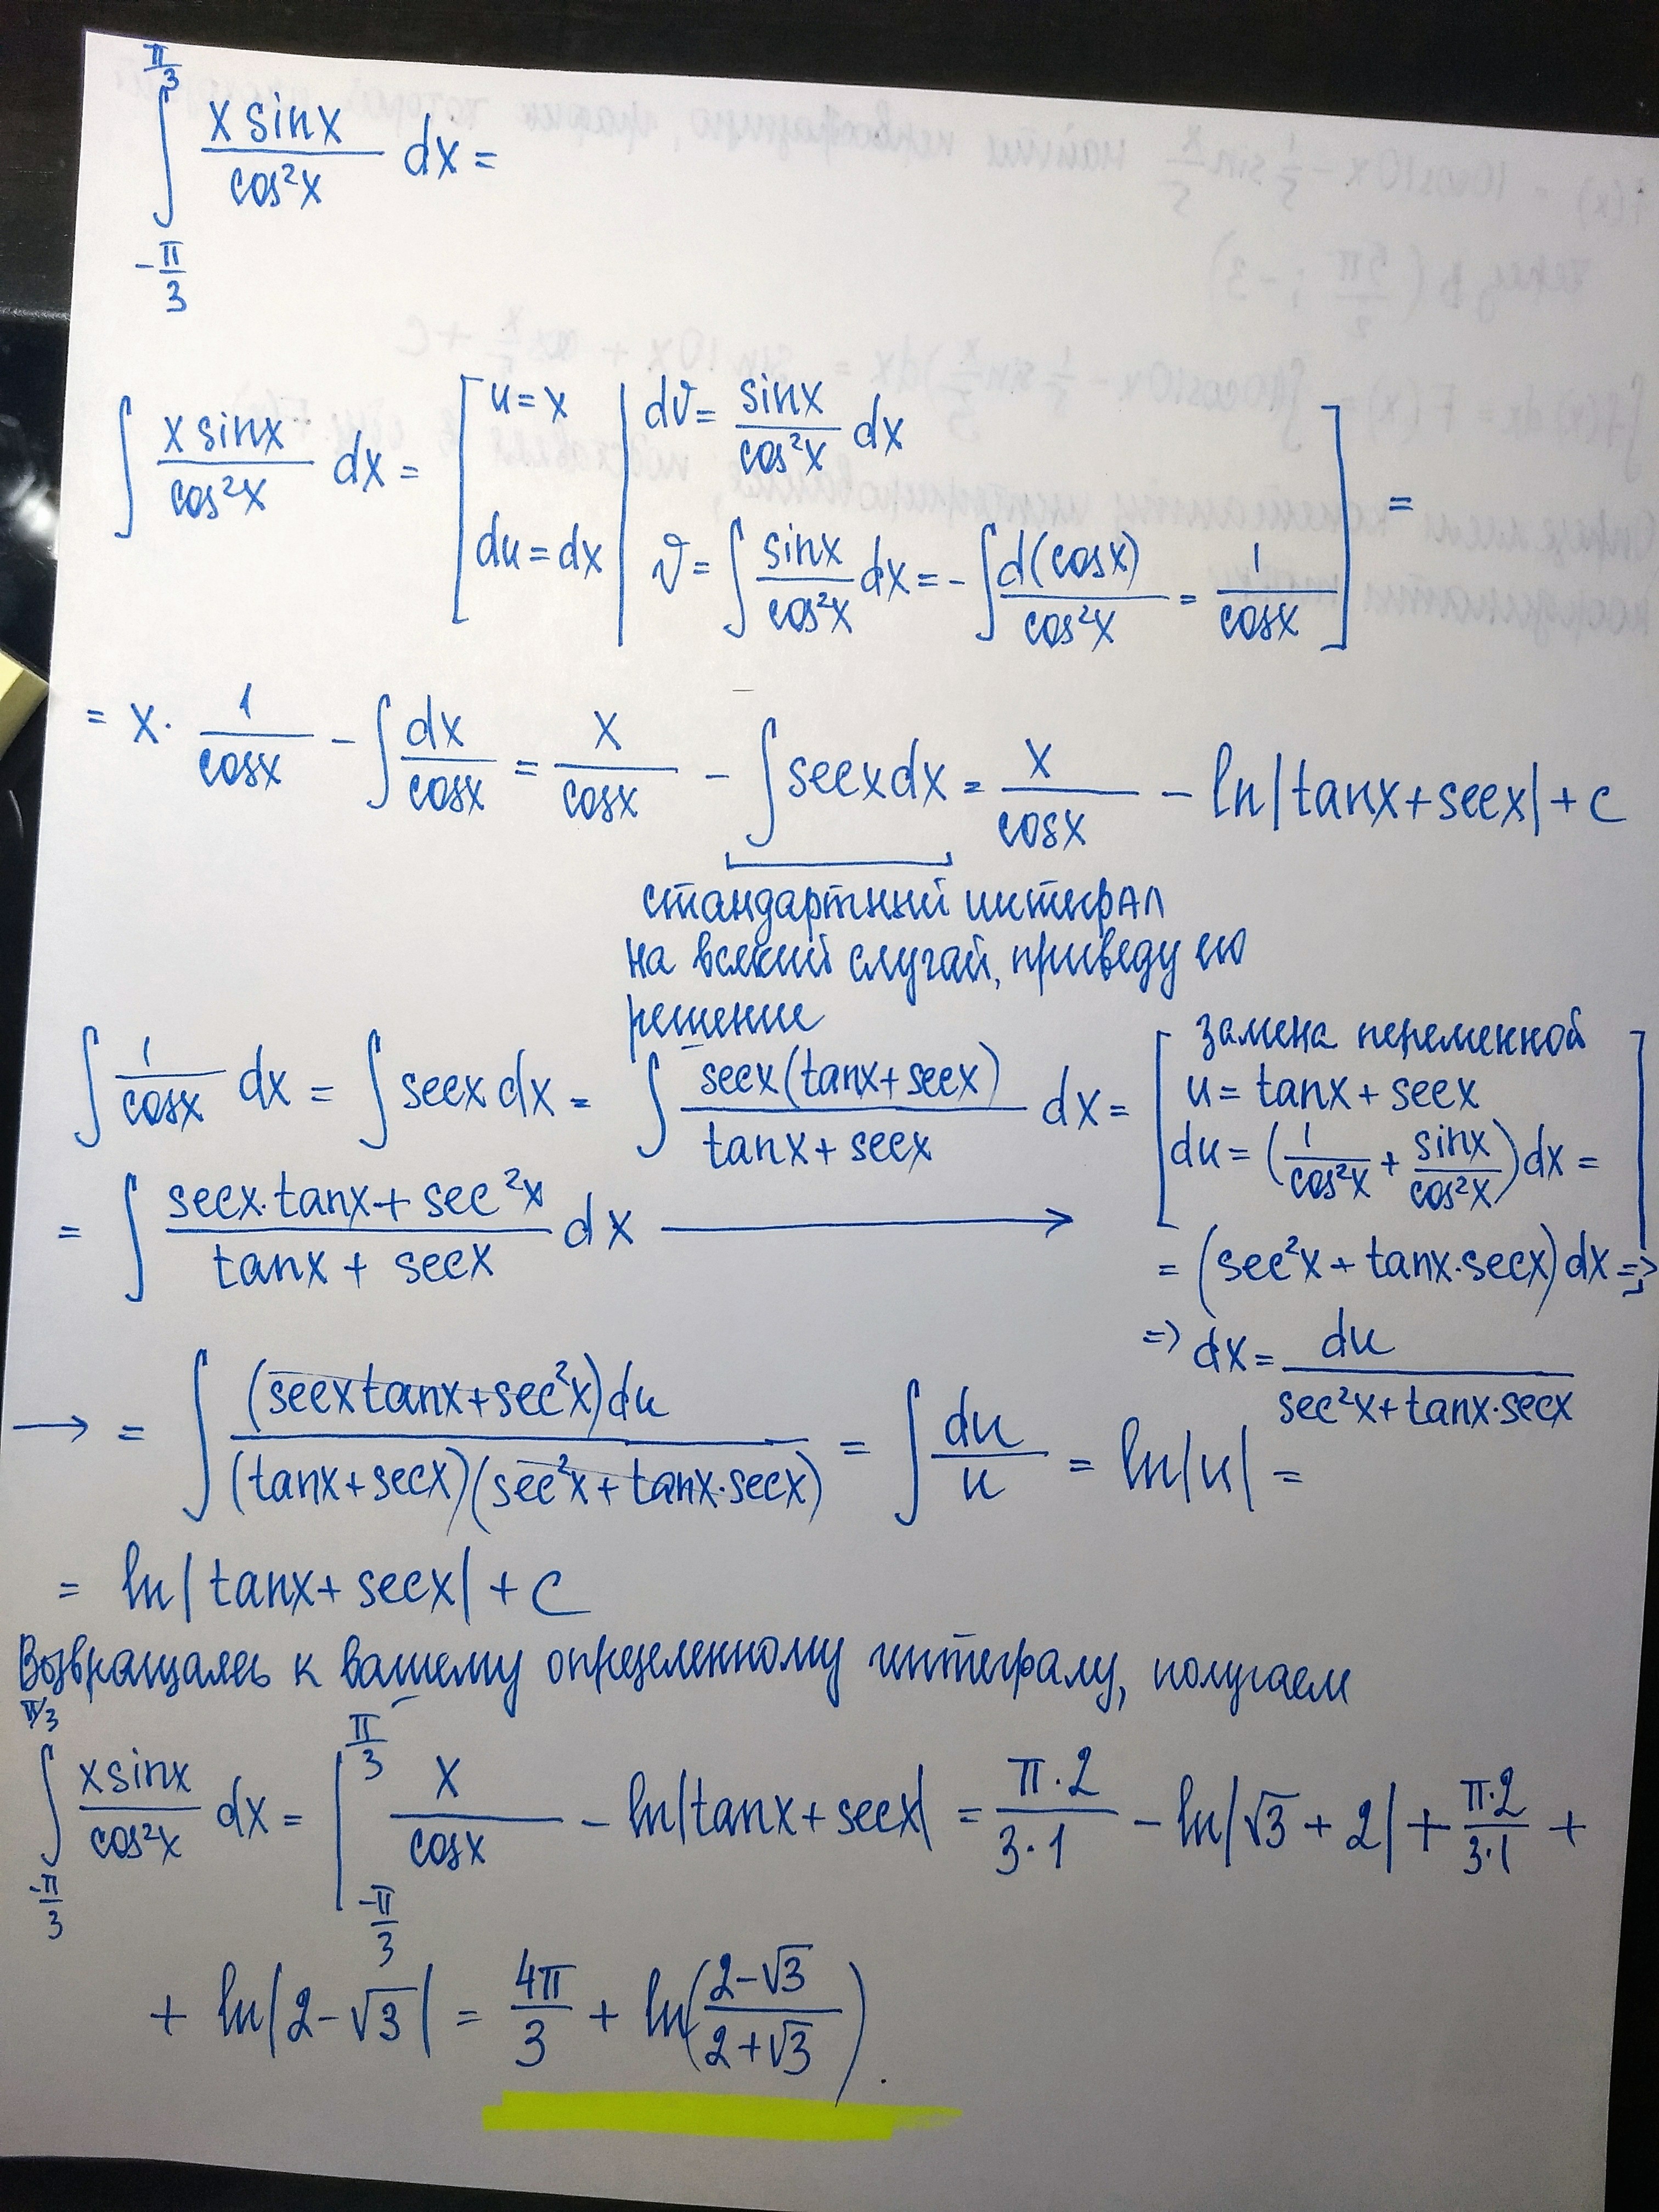 ∫_{-π/3}^{π/3} x sinx / cos²x dx =
∫ x sinx / cos²x dx = [ u = x | dv = sinx / cos²x dx
du = dx | v = ∫ sinx / cos²x dx = - ∫ d(cosx) / cos²x = 1 / cosx ] =
= x · 1 / cosx - ∫ dx / cosx = x / cosx - ∫ secx dx = x / cosx - ln|tanx + secx| + C
стандартный интеграл
на всякий случай, приведу его
решение
∫ 1 / cosx dx = ∫ secx dx = ∫ secx(tanx + secx) / (tanx + secx) dx = [ замена переменной
u = tanx + secx
du = (1 / cos²x + sinx / cos²x) dx = ]
= ∫ (secx · tanx + sec²x) / (tanx + secx) dx →
= (sec²x + tanx · secx) dx =>
=> dx = du / (sec²x + tanx · secx)
→ = ∫ (secx tanx + sec²x) du / (tanx + secx)(sec²x + tanx · secx) = ∫ du / u = ln|u| =
= ln|tanx + secx| + C
Возвращаясь к вашему определенному интегралу, получаем
∫_{-π/3}^{π/3} x sinx / cos²x dx = |_{-π/3}^{π/3} x / cosx - ln|tanx + secx| = π · 2 / 3 · 1 - ln|√3 + 2| + π · 2 / 3 · 1 +
+ ln|2 - √3| = 4π / 3 + ln((2 - √3) / (2 + √3)).